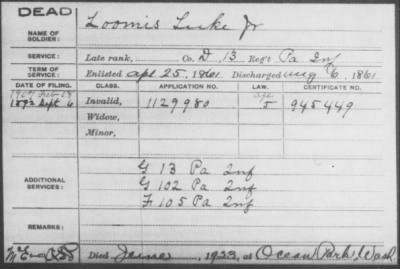 DEAD
NAME OF SOLDIER: Loomis Luke Jr
SERVICE: Late rank, Co. D, 13 Regt Pa Inf
TERM OF SERVICE: Enlisted Apl 25, 1861 Discharged Aug 6, 1861
DATE OF FILING. CLASS. APPLICATION NO. LAW. CERTIFICATE NO.
1892 Sept 6 Invalid, 1129980 5 945449
Widow,
Minor,
G 13 Pa Inf
ADDITIONAL SERVICES: G 102 Pa Inf
F 105 Pa Inf
REMARKS:
Died June, 1922, at Ocean Park Wash